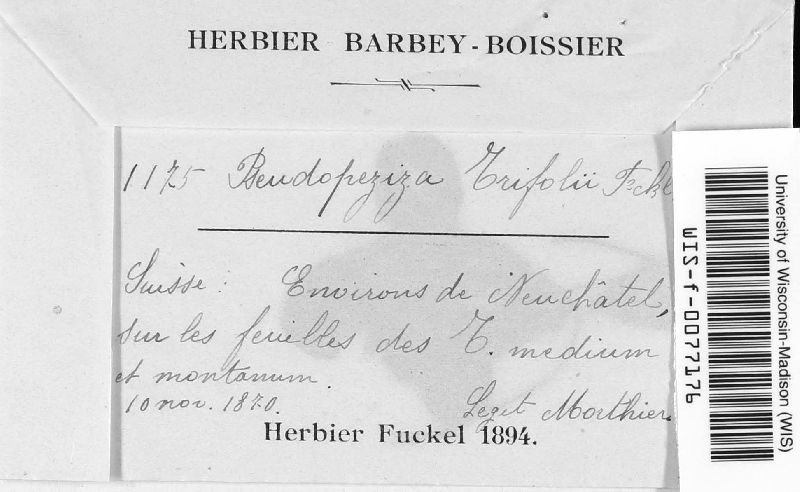 HERBIER BARBEY-BOISSIER
1175 Pseudopeziza Trifolii Fckl
Suisse: Environs de Neuchâtel,
sur les feuilles des T. medium
et montanum.
10 nov. 1870. Legit Morthier.
Herbier Fuckel 1894.
University of Wisconsin-Madison (WIS)
WIS-f-0077176